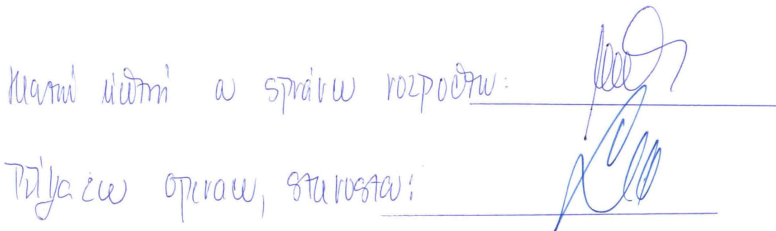 Hlavní účetní a správce rozpočtu:
Příkazce operace, starosta: